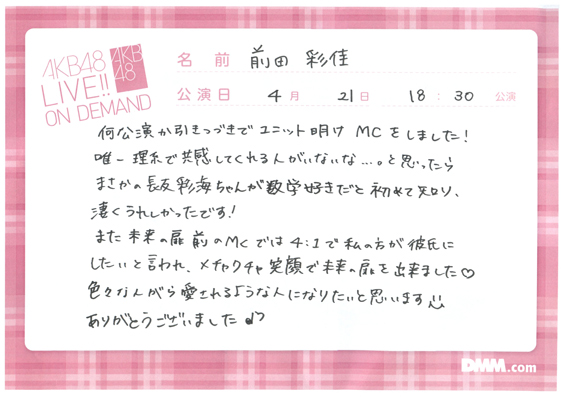 AKB48
LIVE!!
ON DEMAND
AKB
48
名前 前田 彩佳
公演日 4月 21日 18:30 公演
何公演か引きつづきでユニット明け MCをしました!
唯一理系で共感してくれる人がいないな…。と思ったら
まさかの長友彩海ちゃんが数学好きだと初めて知り、
凄くうれしかったです!
また未来の扉前のMCでは4:1で私の方が彼氏に
したいと言われ、メチャクチャ笑顔で未来の扉を出来ました♡
色々なんがら愛されるような人になりたいと思います
ありがとうございました♪
DMM.com